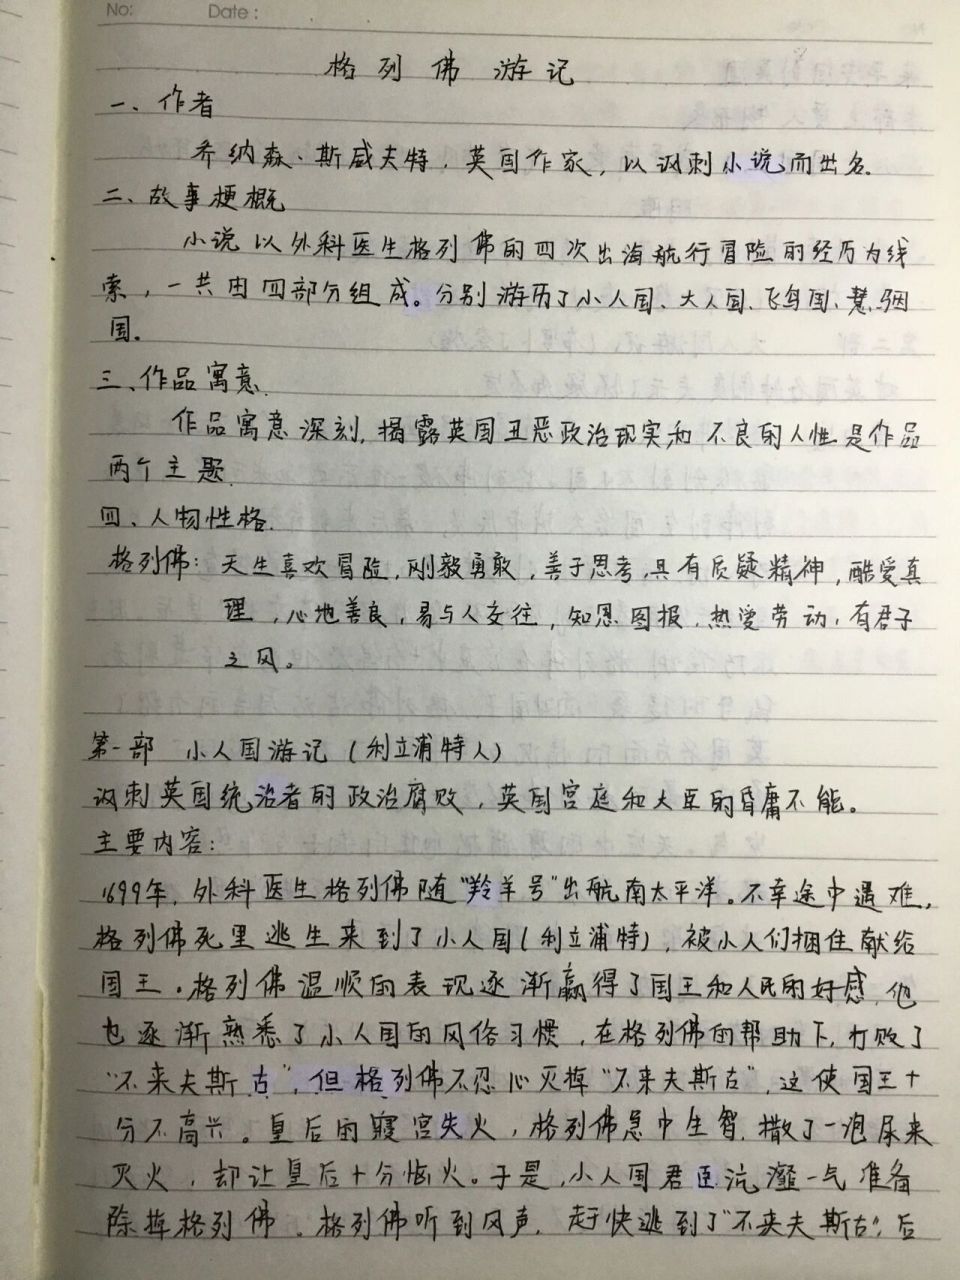 No: Date:
格列佛游记
一、作者
乔纳森·斯威夫特，英国作家，以讽刺小说而出名.
二、故事梗概
小说以外科医生格列佛的四次出海航行冒险的经历为线
索，一共由四部分组成。分别游历了小人国、大人国、飞鸟国、慧骃
国。
三、作品寓意.
作品寓意深刻，揭露英国丑恶政治现实和不良的人性是作品
两个主题.
四、人物性格.
格列佛：天生喜欢冒险，刚毅勇敢，善于思考，具有质疑精神，酷爱真
理，心地善良，易与人交往，知恩图报，热爱劳动，有君子
之风。
第一部 小人国游记（利立浦特人）
讽刺英国统治者的政治腐败，英国宫庭和大臣的昏庸不能。
主要内容：
1699年，外科医生格列佛随“羚羊号”出航南太平洋。不幸途中遇难，
格列佛死里逃生来到了小人国（利立浦特），被小人们捆住献给
国王。格列佛温顺的表现逐渐赢得了国王和人民的好感，他
也逐渐熟悉了小人国的风俗习惯，在格列佛的帮助下，打败了
“不来夫斯古”，但格列佛不忍心灭掉“不来夫斯古”，这使国王十
分不高兴。皇后的寝宫失火，格列佛急中生智，撒了一泡尿来
灭火，却让皇后十分恼火。于是，小人国君臣沆瀣一气准备
除掉格列佛。格列佛听到风声，赶快逃到了“不来夫斯古”，后